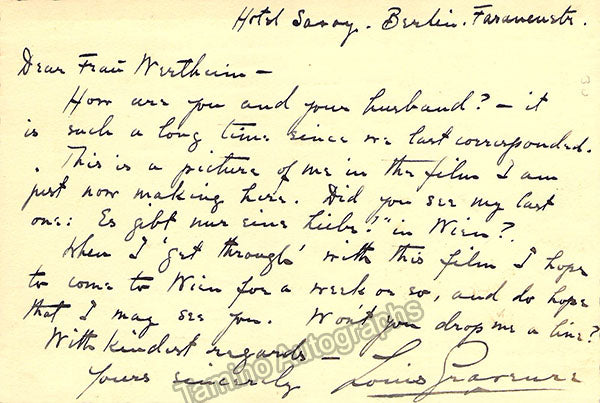 Hotel Savoy. Berlin. Fasanenstr.
Dear Frau Wertheim –
How are you and your husband? – it
is such a long time since we last corresponded.
This is a picture of me in the film I am
just now making here. Did you see my last
one: Es gibt nur eine Liebe!" in Wien?
When I 'get through' with this film I hope
to come to Wien for a week or so, and do hope
that I may see you. Won't you drop me a line?
With kindest regards –
Yours sincerely Louis Graveure
Tamino Autographs